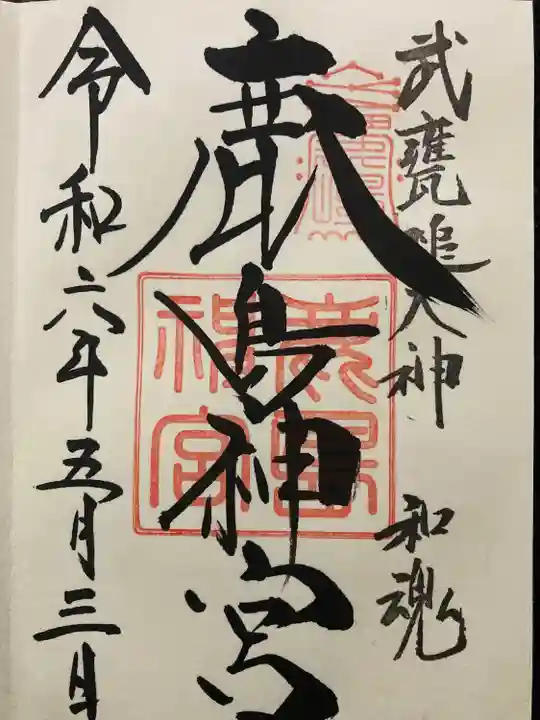 武甕槌大神 和魂
鹿島神宮
鹿島神宮
令和六年五月三日